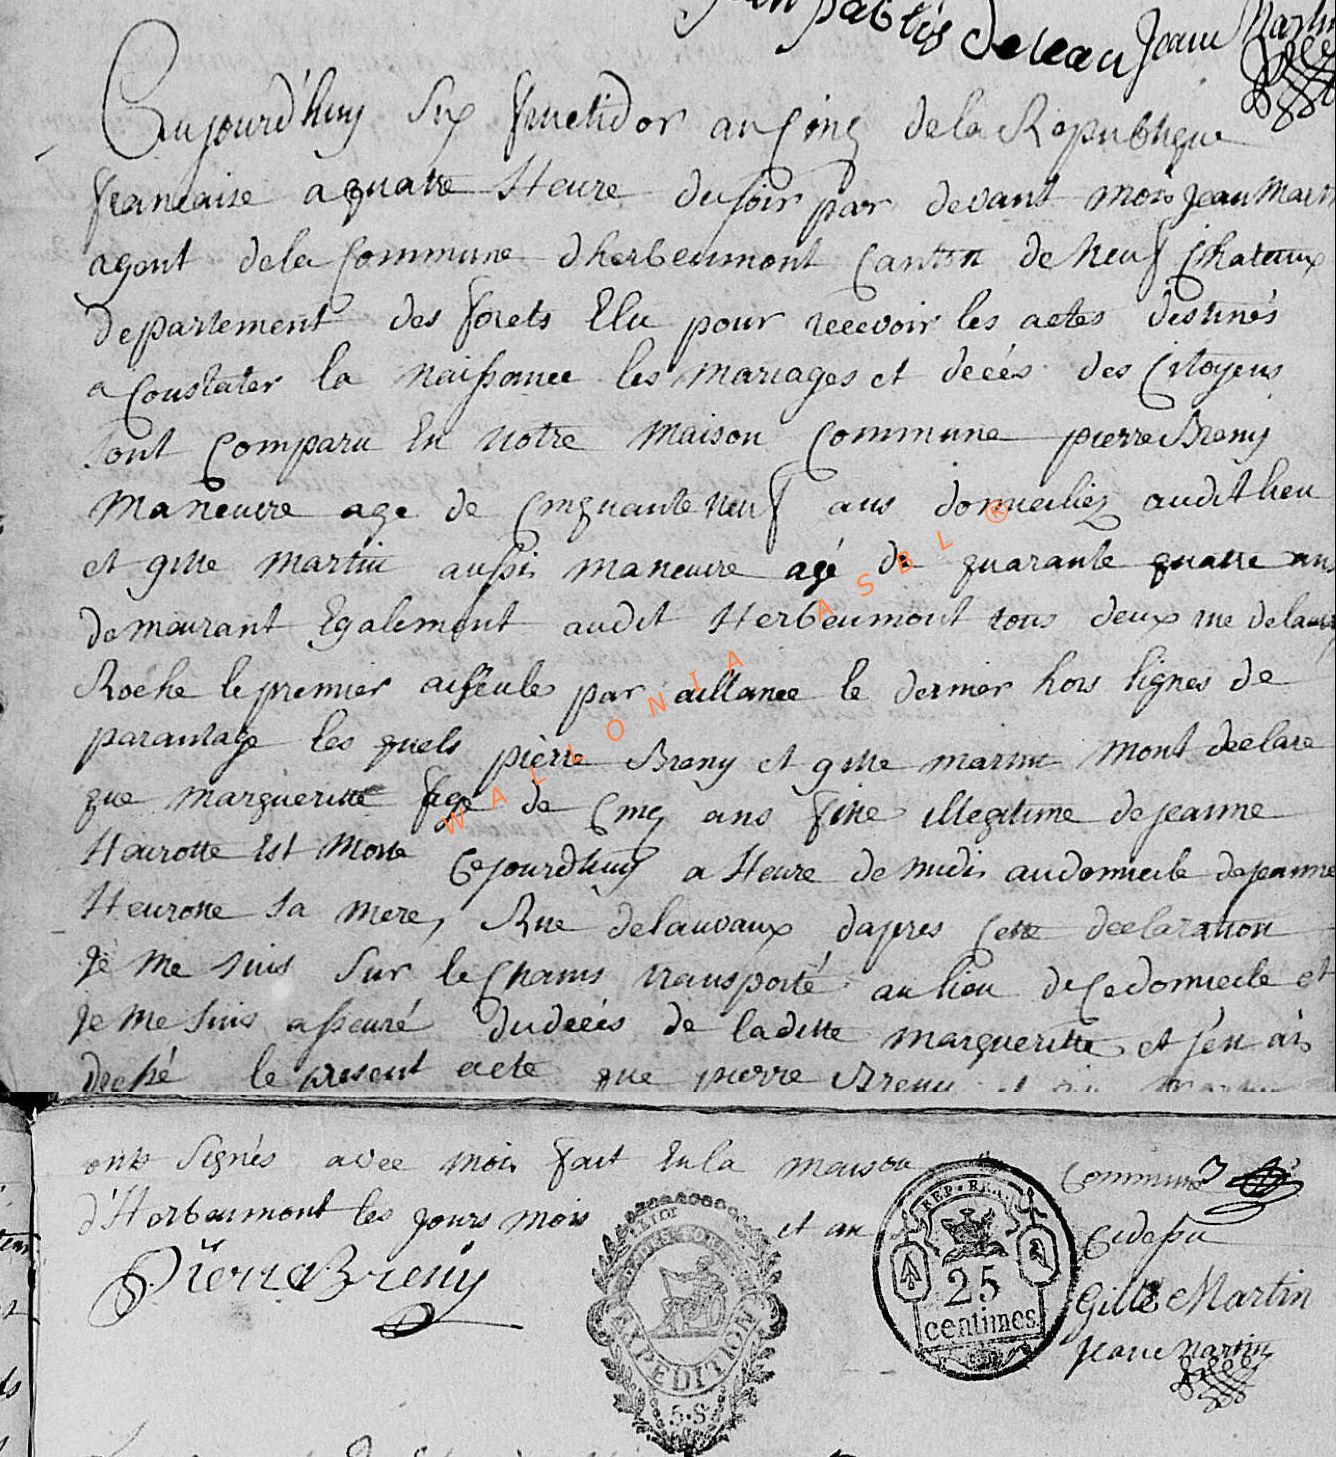 pablis deleau Jean Martin
Aujourd'huy Six fructidor an Cinq de la Republique
francaise a quatre Heure du soir par devant moi Jean Martin
agent de la Commune dherbeumont Canton de Neuf Chateaux
departement des forets Elu pour recevoir les actes destinés
a Constater la naissance les mariages et décés des Citoyens
sont Comparu En notre Maison Commune pierre Breny
Maneuvre age de Cinquante neuf ans domecilièz audit lieu
et gille martin aussi maneuvre agé de quarante quatre ans
demeurant Egalement audit Herbeumont tous deux rue de la
Roche le premier aisseule par aillance le dernier hors lignes de
parantage les quels pierre Breny et gille martin mont declare
que margueritte age de Cinq ans fille illegitime de jeanne
Heurotte Est Morte Cejourdhuy a Heure de midi au domicile de jeanne
Heurotte Sa mere, Rue delauvaux dapres Cette declaration
Je Me Suis Sur le Chams transporté au lieu de Ce domicile et
Je Me Suis asseuré du décés de laditte margueritte et j'en ais
dressé le present acte que pierre Breny
onts Signés avec moi fait En la maison Commune
d'Herbeumont les jours mois et an Cidessu
Pierre Breny
Gille Martin
Jean Martin
REP. FRA.
25
centimes
EXPEDITION
5.S
WALLONIA ASBL ®